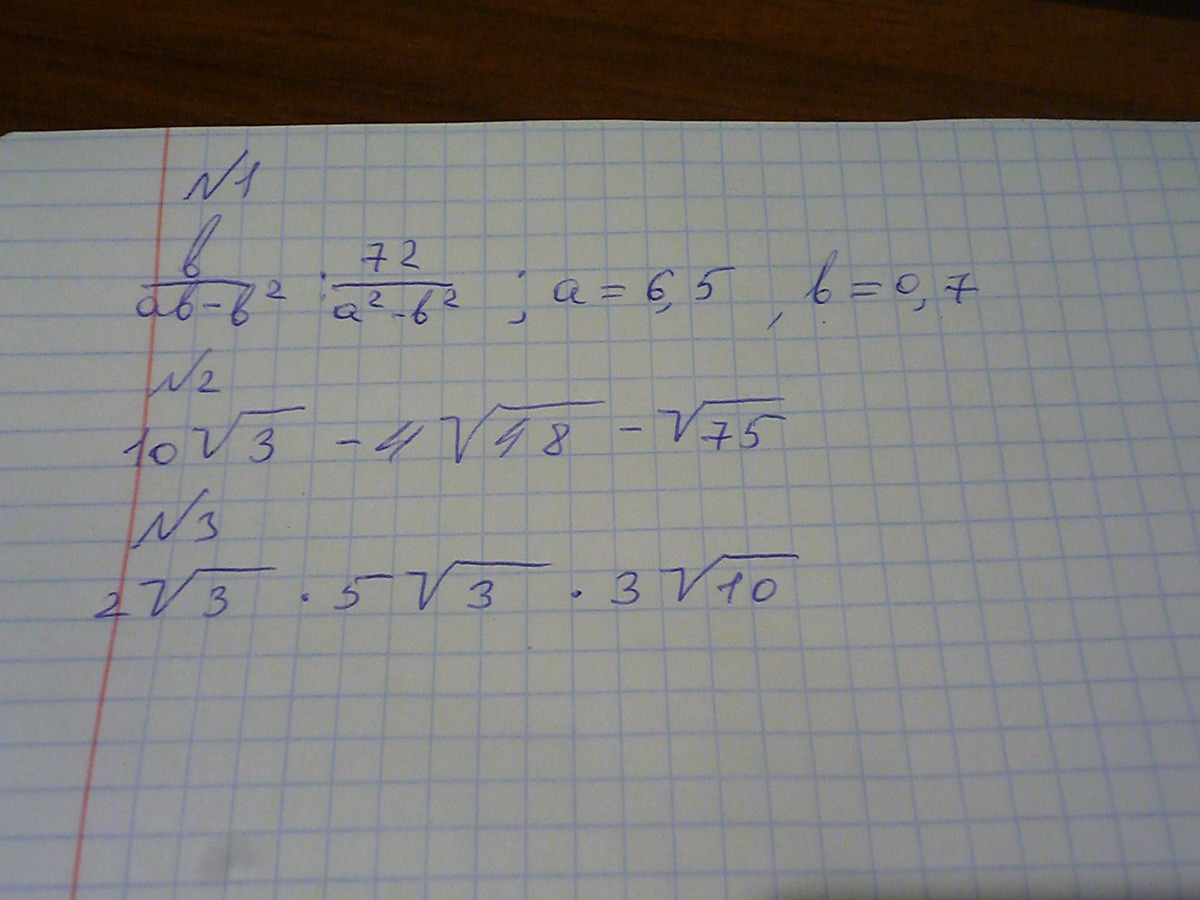 №1
в/(ав-в²) : 72/(а²-в²) ; а = 6,5 , в = 0,7
№2
10√3 - 4√48 - √75
№3
2√3 · 5√3 · 3√10